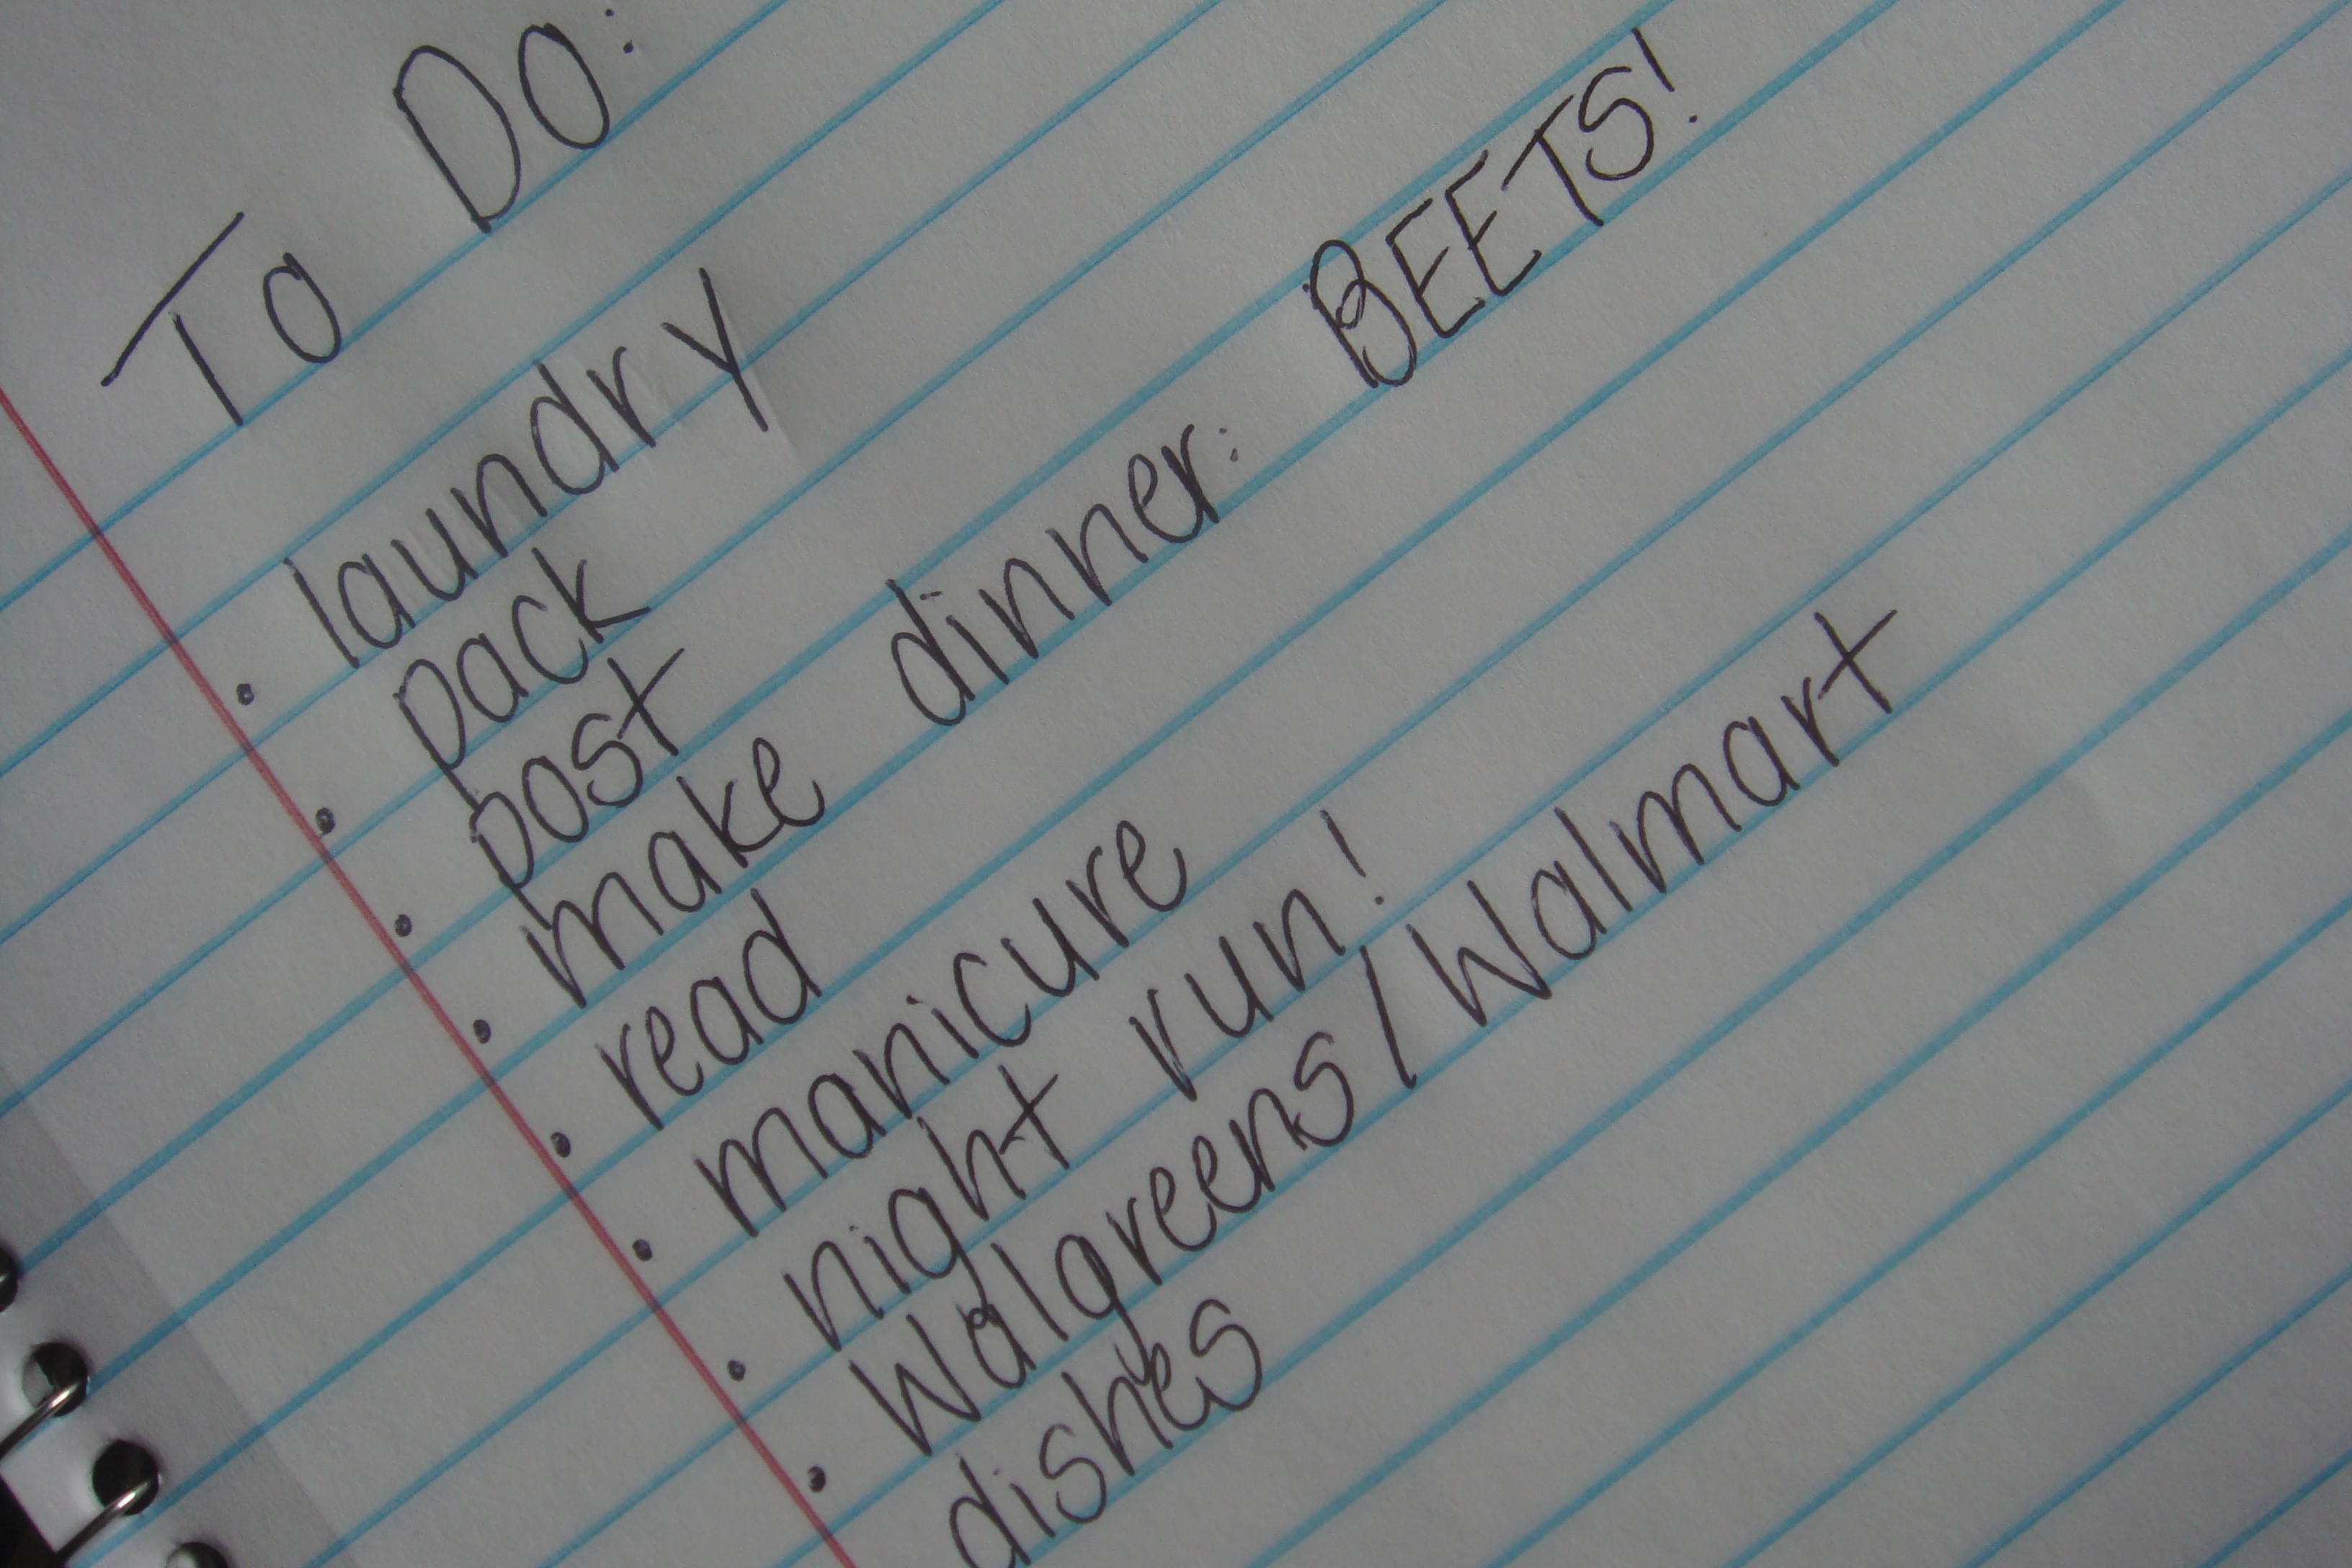 To Do:
• laundry
• pack
• post
• make dinner: BEETS!
• read
• manicure
• night run!
• Walgreens/Walmart
dishes